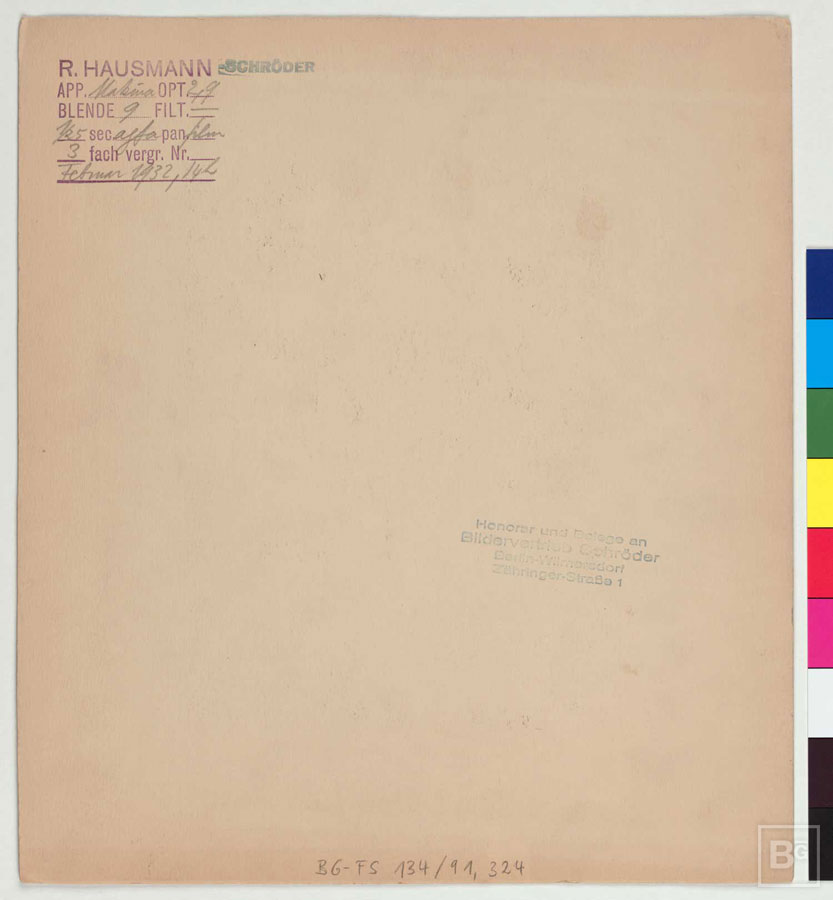 R. HAUSMANN -SCHRÖDER
APP. Makina OPT. 2,9
BLENDE 9 FILT.
1/25 sec. agfa pan film
3 fach vergr. Nr.
Februar 1932, 14h
Honorar und Belege an
Bildervertrieb Schröder
Berlin-Wilmersdorf
Zähringer-Straße 1
BG-FS 134/91, 324
BG